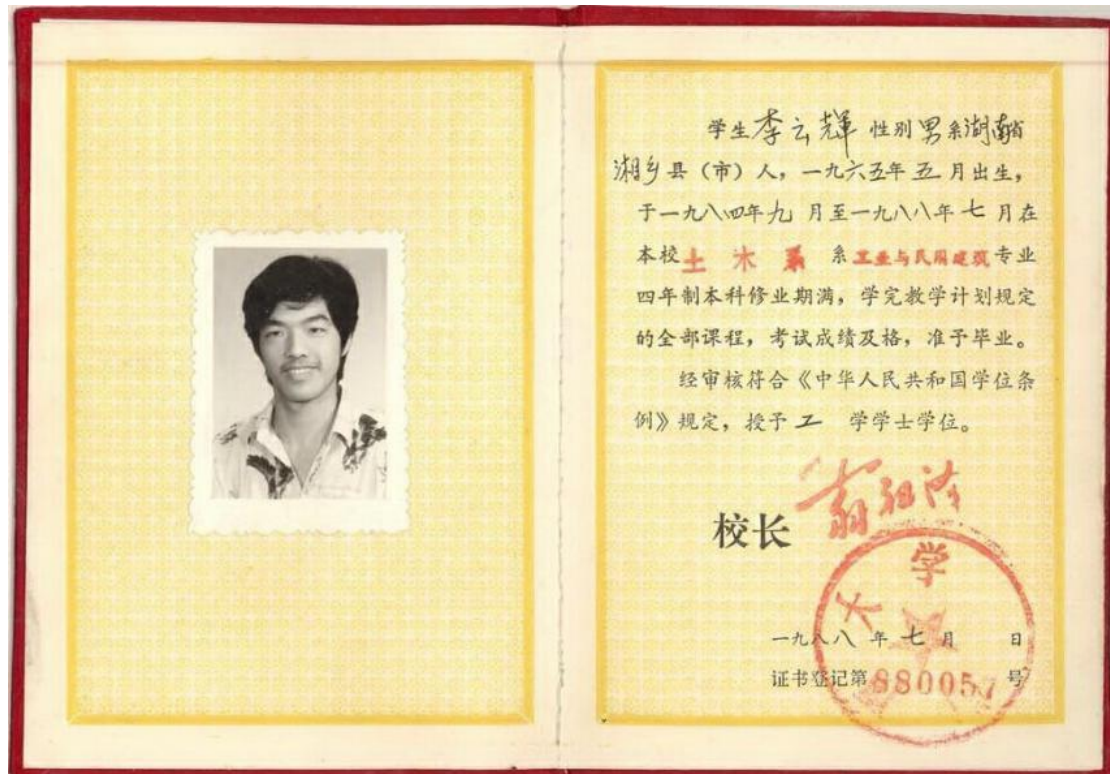 学生李云辉性别男系湖南省
湘乡县（市）人，一九六五年五月出生，
于一九八四年九月至一九八八年七月在
本校土木系系工业与民用建筑专业
四年制本科修业期满，学完教学计划规定
的全部课程，考试成绩及格，准予毕业。
经审核符合《中华人民共和国学位条
例》规定，授予工学学士学位。
校长 翁祖泽
大学
一九八八年七月 日
证书登记第880057号